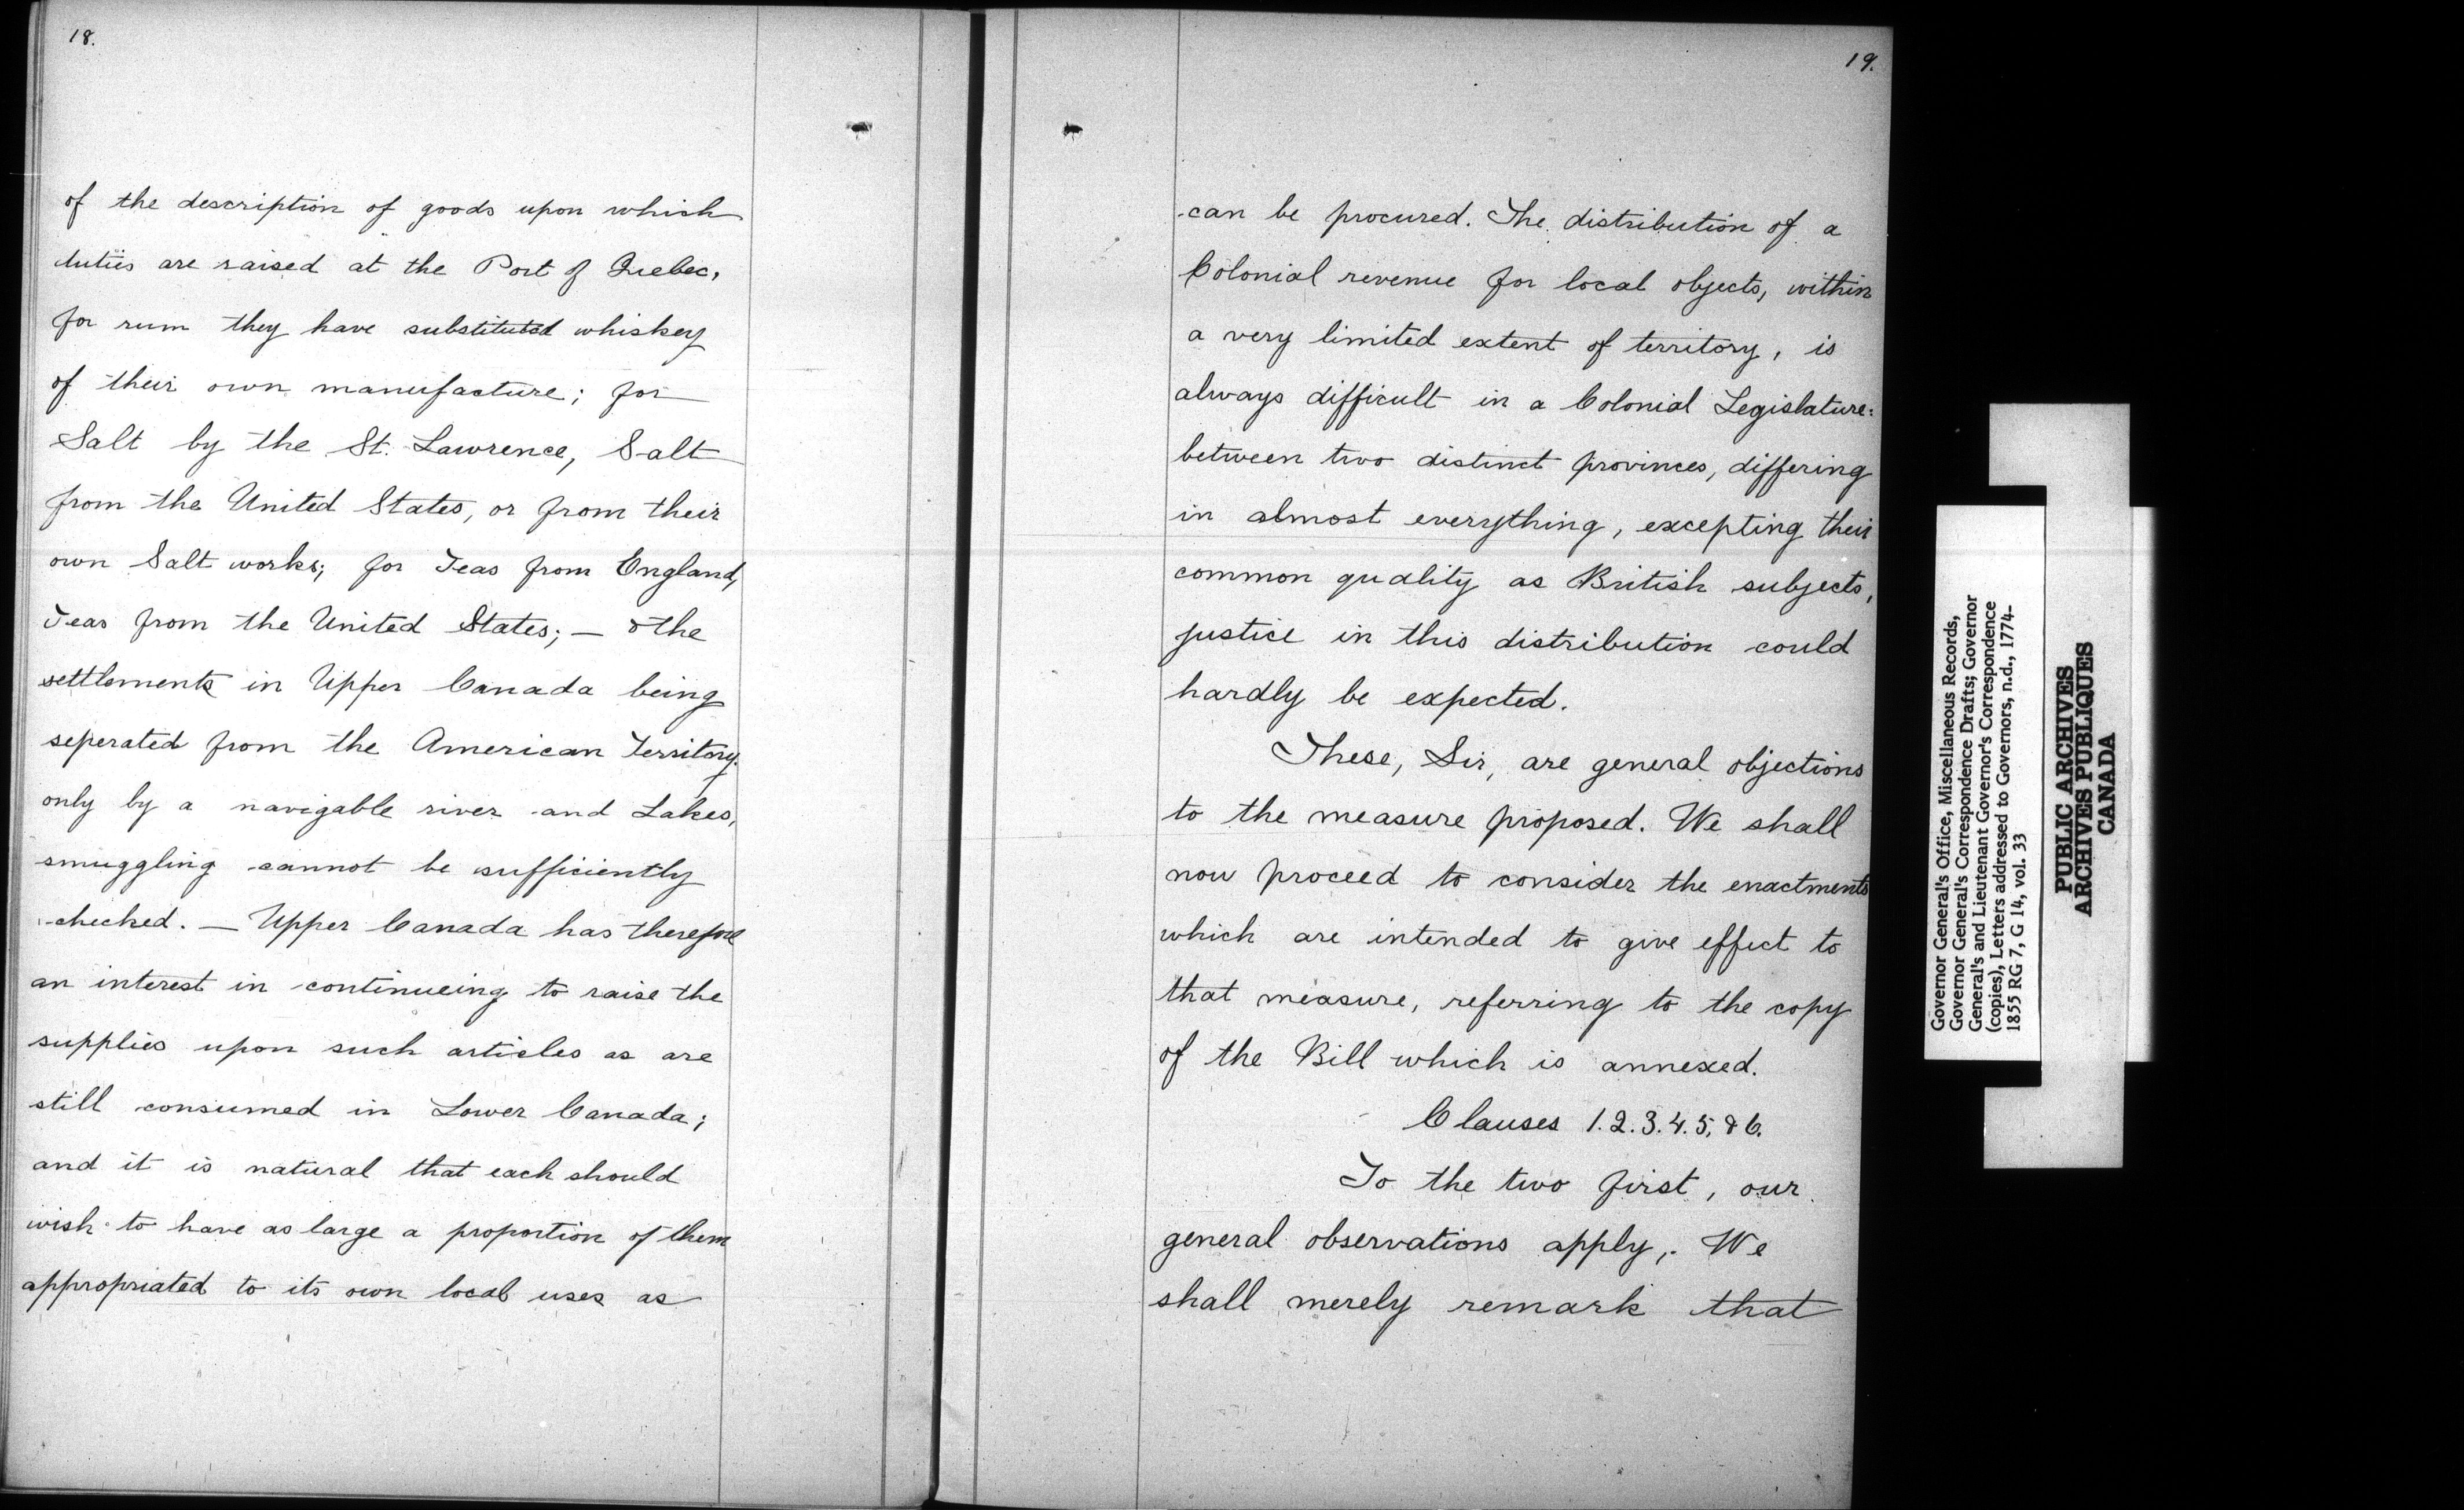 18.
of the description of goods upon which
duties are raised at the Port of Quebec,
for rum they have substituted whiskey
of their own manufacture; for
Salt by the St. Lawrence, Salt
from the United States, or from their
own Salt works; for Teas from England,
Teas from the United States; — & the
settlements in Upper Canada being
seperated from the American Territory
only by a navigable river and Lakes,
smuggling cannot be sufficiently
checked. — Upper Canada has therefore
an interest in continueing to raise the
supplies upon such articles as are
still consumed in Lower Canada;
and it is natural that each should
wish to have as large a proportion of them
appropriated to its own local uses as
19.
can be procured. The distribution of a
Colonial revenue for local objects, within
a very limited extent of territory, is
always difficult in a Colonial Legislature:
between two distinct provinces, differing
in almost everything, excepting their
common quality as British subjects,
justice in this distribution could
hardly be expected.
These, Sir, are general objections
to the measure proposed. We shall
now proceed to consider the enactments
which are intended to give effect to
that measure, referring to the copy
of the Bill which is annexed.
Clauses 1.2.3.4.5, & 6.
To the two first, our
general observations apply; We
shall merely remark that
Governor General's Office, Miscellaneous Records,
Governor General's Correspondence Drafts; Governor
General's and Lieutenant Governor's Correspondence
(copies), Letters addressed to Governors, n.d., 1774-
1855 RG 7, G 14, vol. 33
PUBLIC ARCHIVES
ARCHIVES PUBLIQUES
CANADA